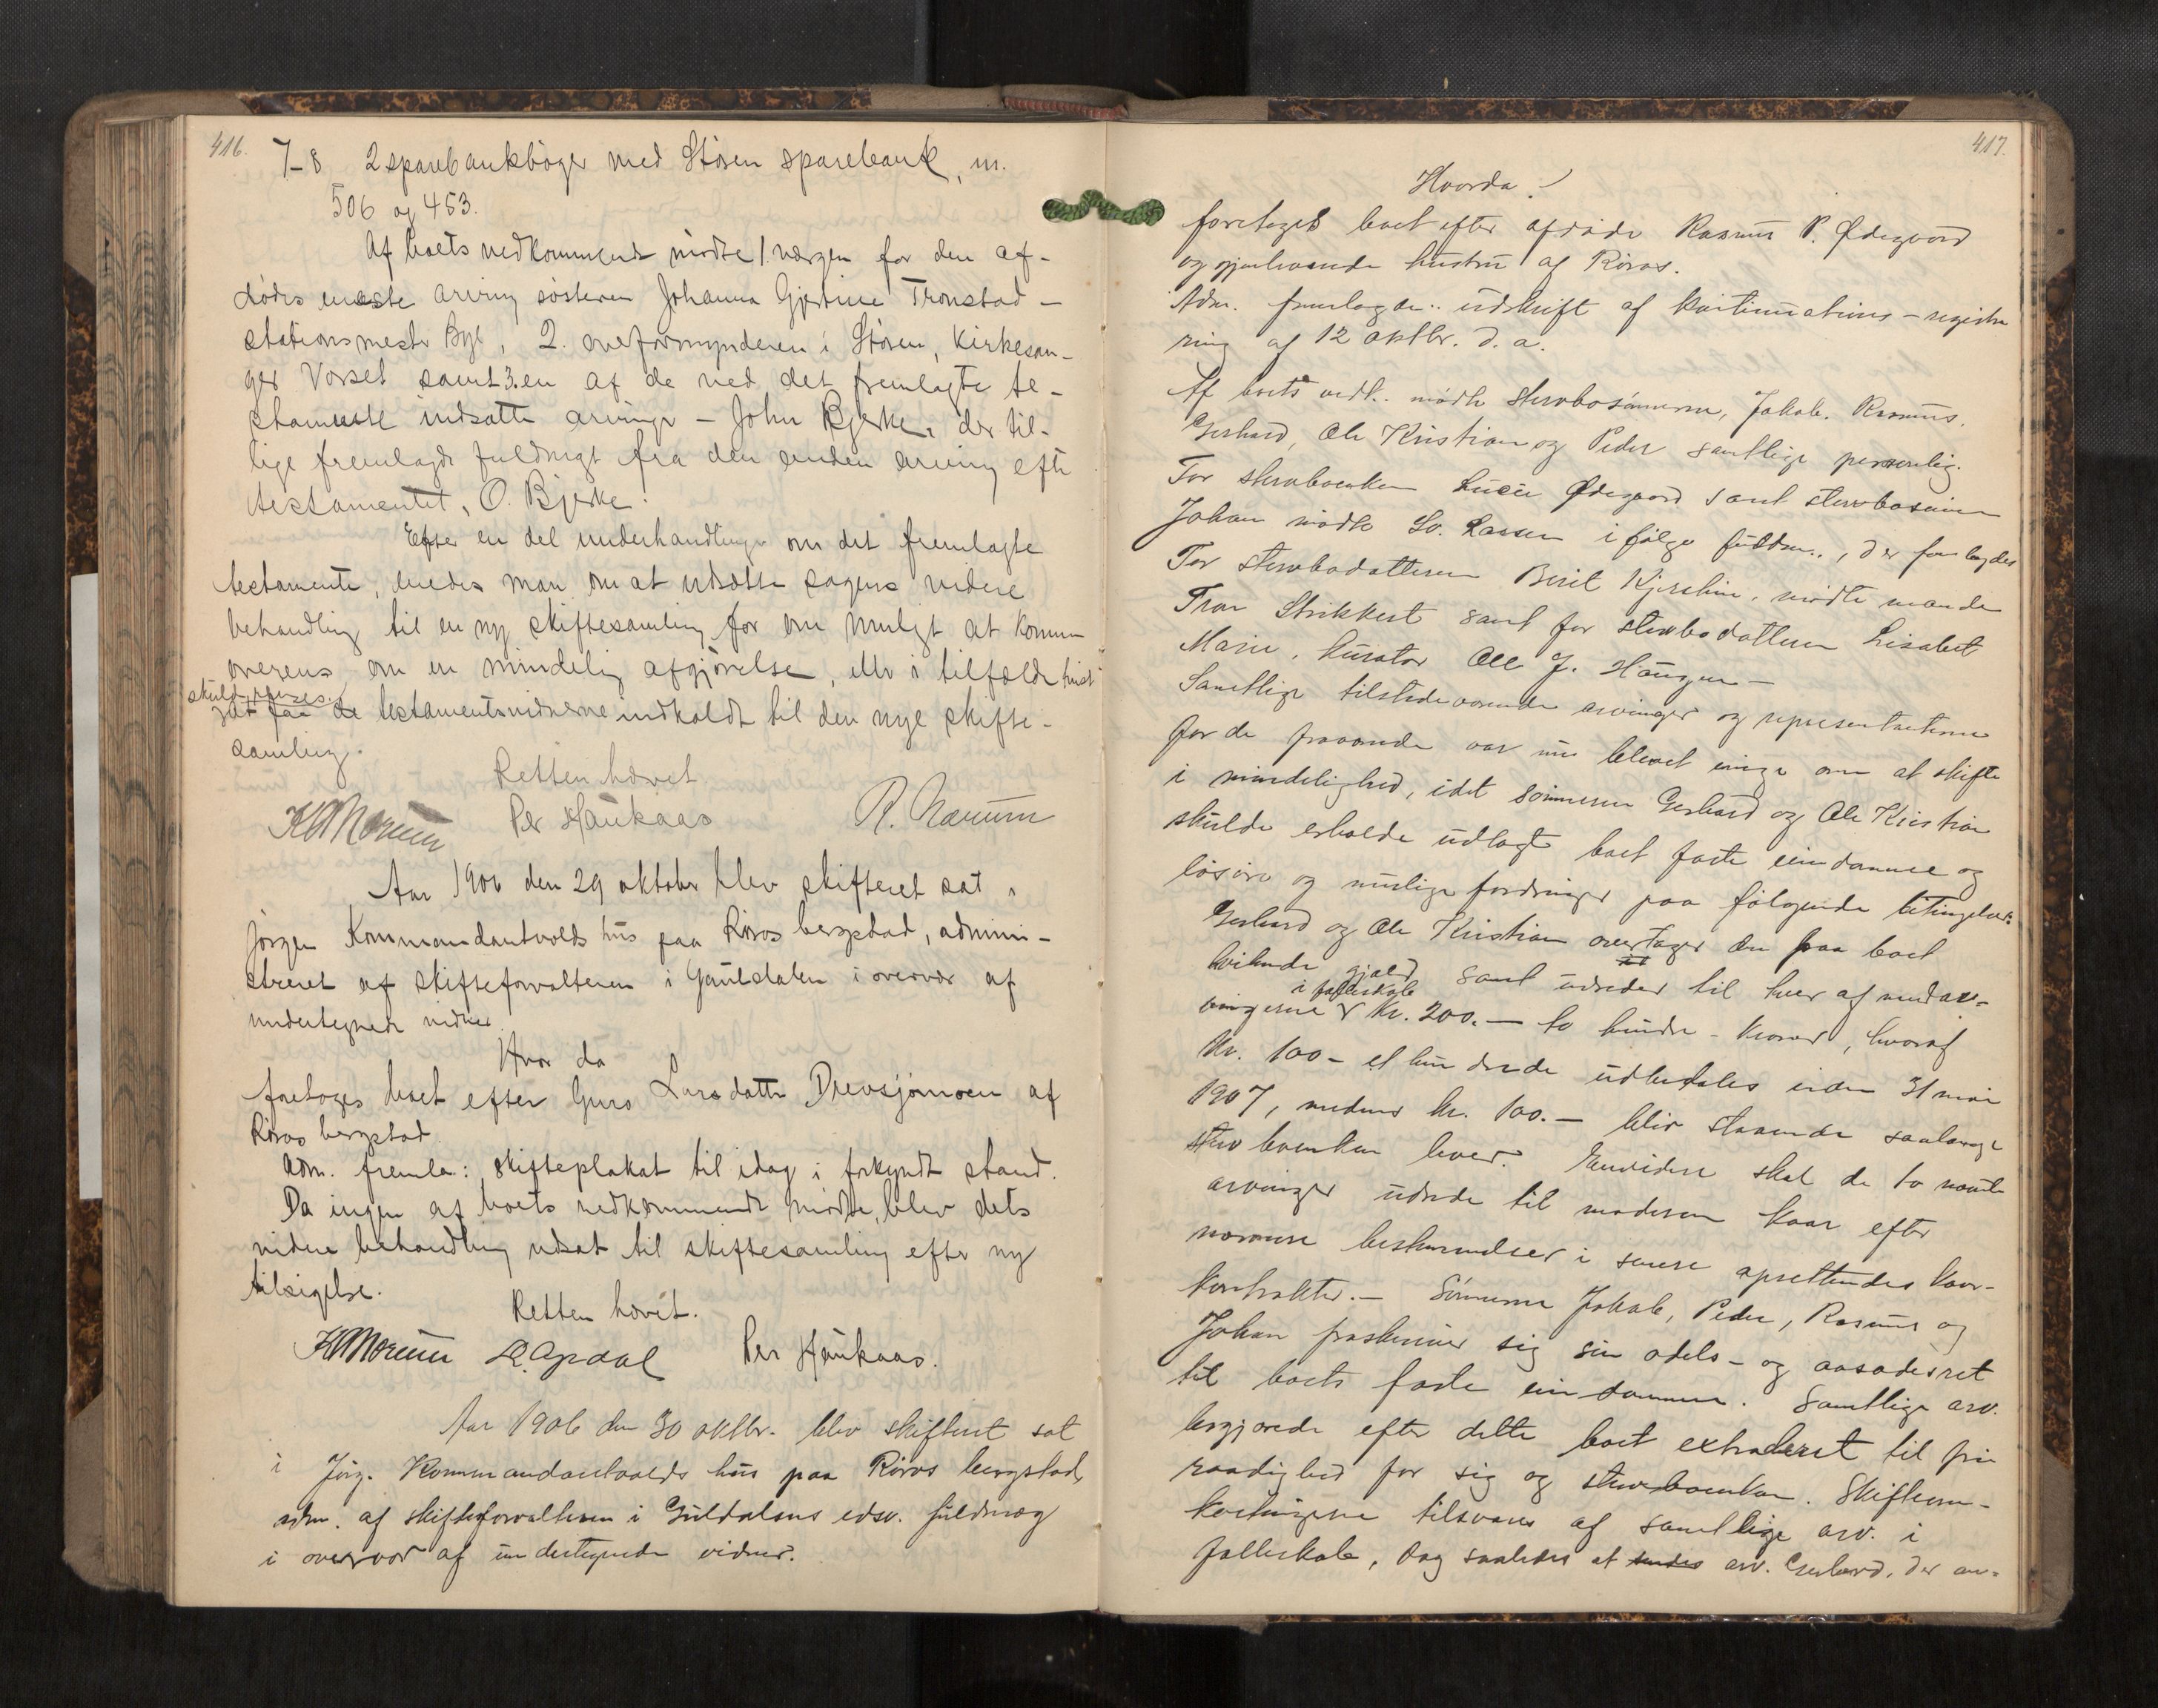 416.
7-8 2 sparebankbøger med Støren sparebank, nr.
506 og 453.
Af boets vedkommende mødte 1. værgen for den af-
dødes eneste arving søsteren Johanna Gjertine Tronstad -
stationsmester Bye, 2. overformynderen i Støren, Kirkesan-
ger Vorset samt 3. en af de ved det fremlagte te-
stamente indsatte arvinger - John Bjerke, der til-
lige fremlagde fuldmagt fra den anden arving efter
testamentet, O. Bjerke.
Efter en del underhandlinger om det fremlagte
testamente, enedes man om at udsætte sagens videre
behandling til en ny skiftesamling for om muligt at komme
overens om en mindelig afgjørelse, eller i tilfælde
testamentsvidnerne indkaldt til den nye skifte-
samling.
Retten hævet
Per Haukaas
Aar 1906 den 29 oktober blev skifteret sat i
Jørgen Kommandantvolds hus paa Røros bergstad, admini-
streret af skifteforvalteren i Gauldalen i overvær af
undertegnede vidner.
Hvor da
foretoges boet efter Guro Larsdatter Drevsjømoen af
Røros bergstad.
Adm. fremla: skifteplakat til idag i forkyndt stand.
Da ingen af boets vedkommende mødte, blev dets
videre behandling udsat til skiftesamling efter ny
tilsigelse.
Retten hævet.
Per Haukaas.
Aar 1906 den 30 oktbr. blev skifteret sat
i Jørg. Kommandantvolds hus paa Røros bergstad,
adm. af skifteforvalteren i Guldalens edsv. fuldmæg
i overvær af undertegnede vidner.
417.
Hvorda!
foretoges boet efter afdøde Rasmus P. Ødegaard
og gjenlevende hustru af Røros.
Adm. fremlagde: udskrift af kontinuations-registre
ring af 12 oktbr. d. a.
Af boets vedk. mødte stervbosønnerne, Jakob, Rasmus,
Gerhard, Ole Kristian og Peder samtlige personlig.
For stervboenken Lucie Ødegaard samt stervbosønnen
Johan mødte Sv. Lassen i følge fuldm., der fremlagdes
For stervbodatteren Beril Kjerstine, mødte manden
Tron Strikkert samt for stervbodatteren Lisabet
Marie, kurator Ole J. Haugen -
Samtlige tilstedeværende arvinger og representanterne
for de fraværende var nu blevet enige om at skifte
i mindelighed, idet sønnerne Gerhard og Ole Kristian
skulde erholde udlagt boet faste eiendomme og
løsøre og mulige fordringer paa følgende betingelser:
Gerhard og Ole Kristian overtager den paa boet
hvilende gjæld samt udreder til hver af medar-
vingerne i fælleskab kr. 200.- to hundre - kroner, hvoraf
kr. 100- et hundrede udbetales inden 31 mai
1907, medens kr. 100.- blir staaende saalænge
stervboenken lever. Envidere skal de to nævnte
arvinger udrede til moderen kaar efter
nærmere bestemmelser i senere oprettendes kaar-
kontrakter. - Sønnerne Jakob, Peder, Rasmus og
Johan fraskriver sig sin odels- og aasædesret
til boets faste eiendomme. Samtlige arv.
begjærede efter dette boet extraderet til fri
raadighed for sig og stervboenken. Skifteom-
kostningerne tilsvares af samtlige arv. i
fælleskab, dog saaledes at arv. Gerhard, der an-